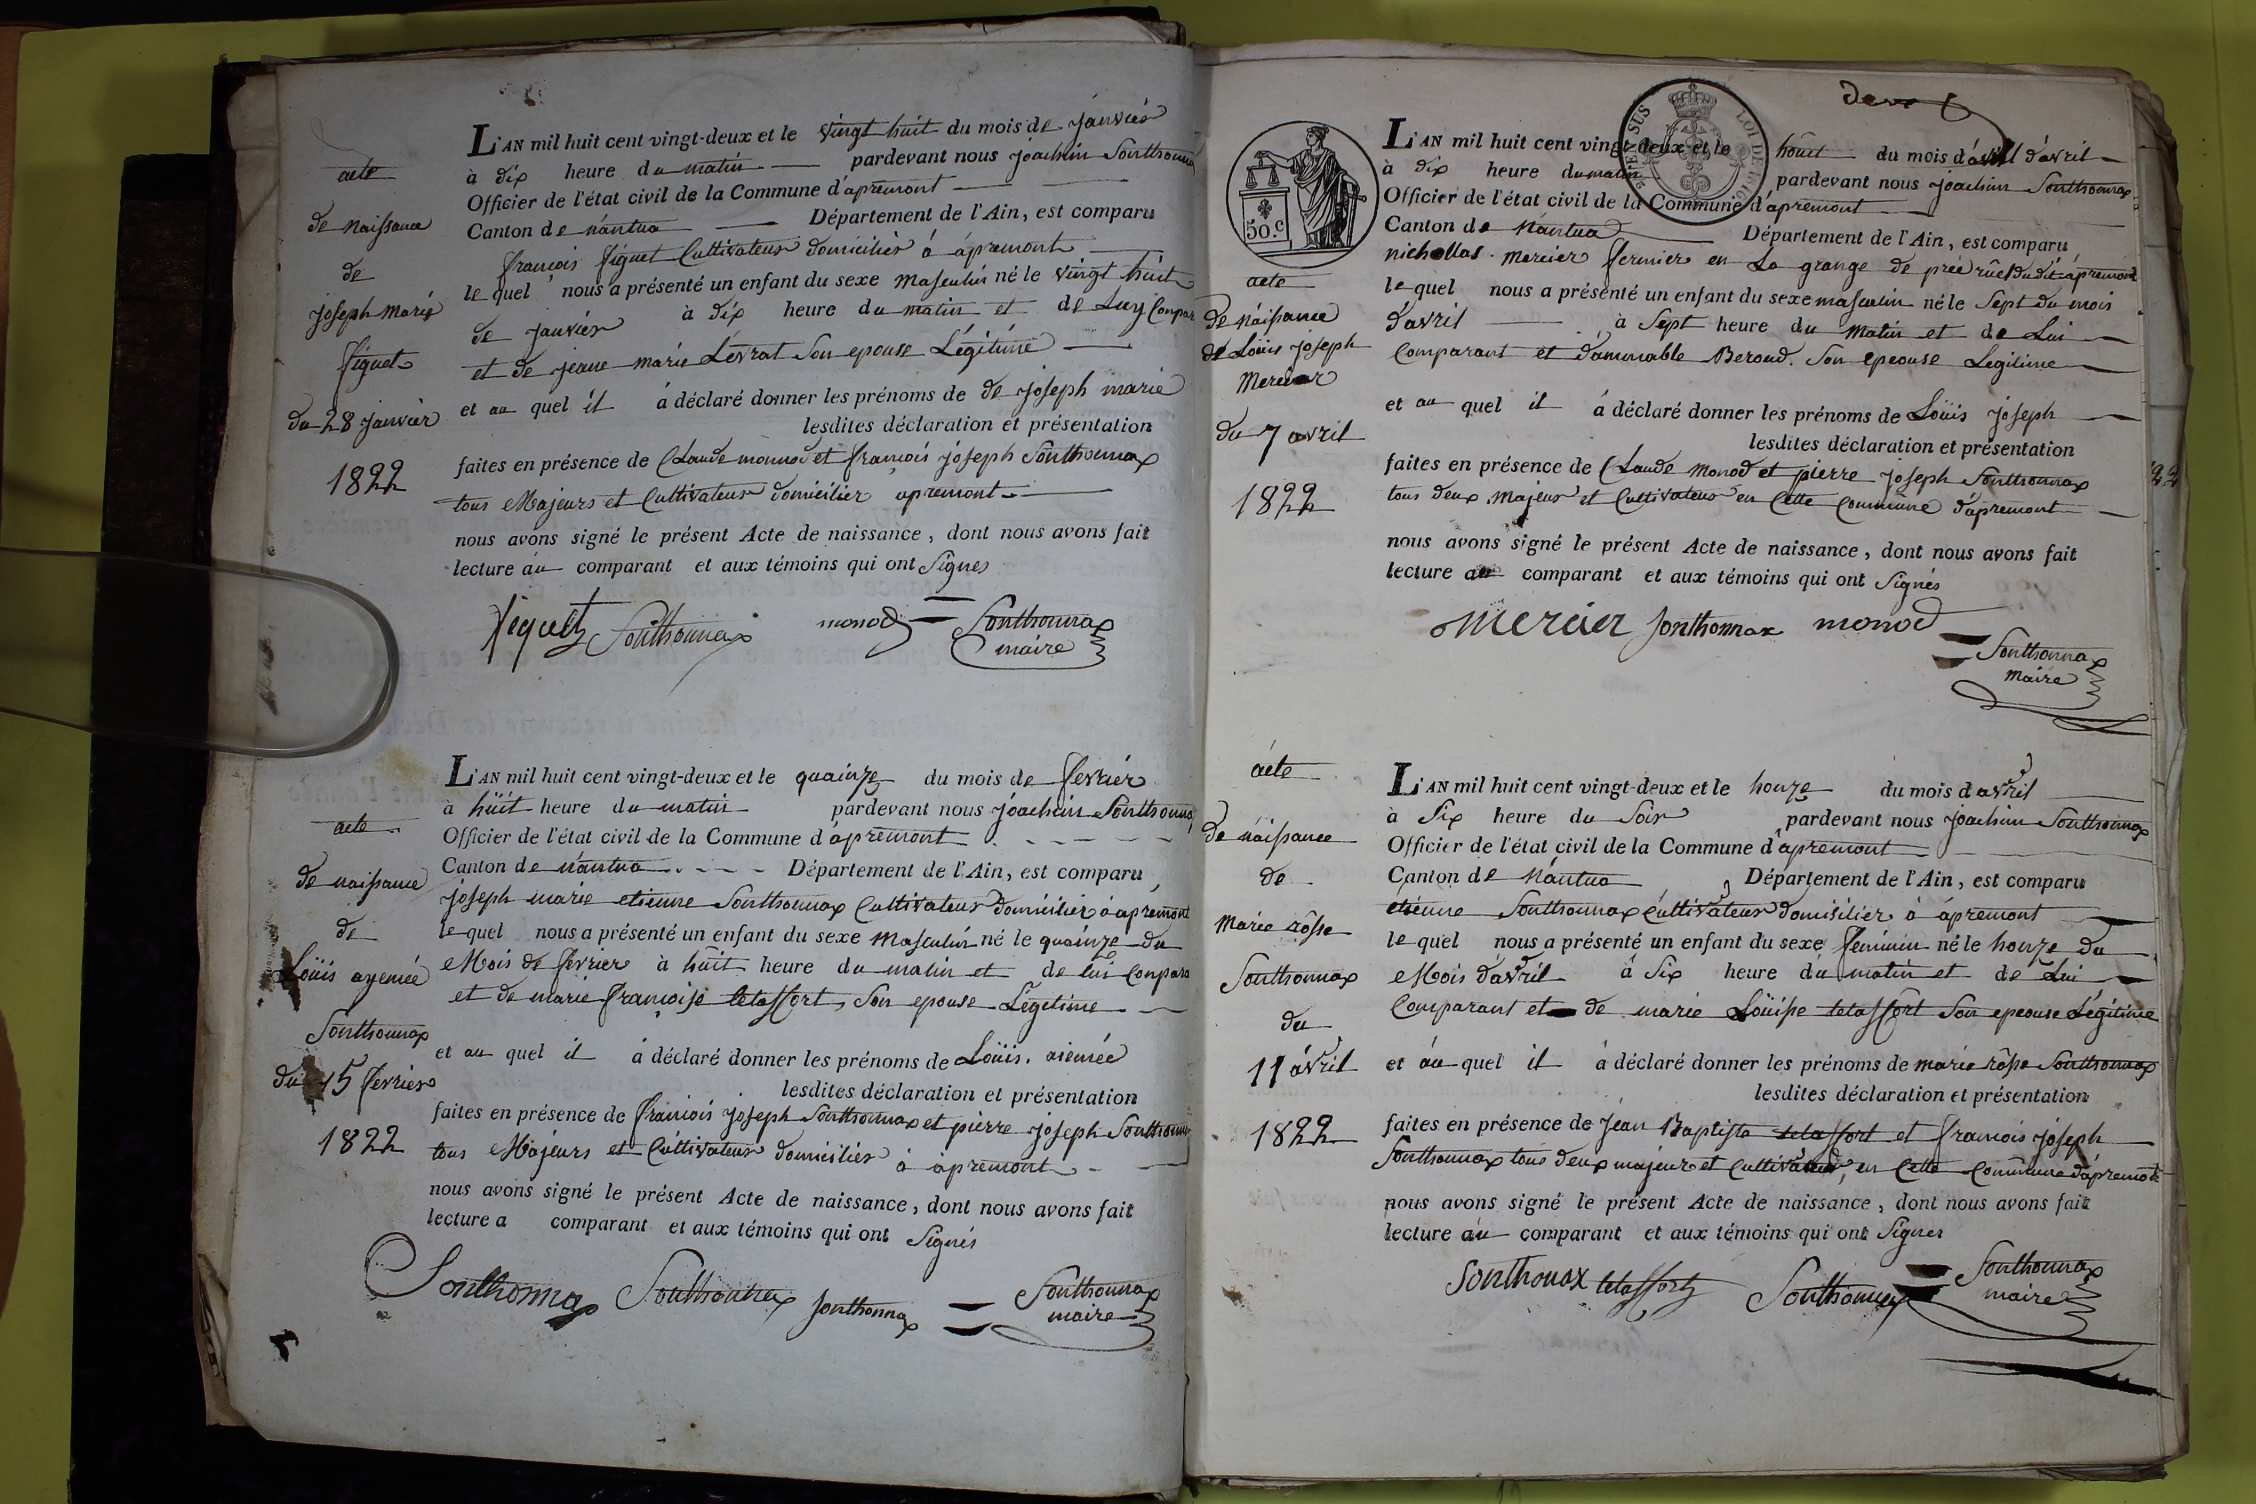 acte
de naissance
de
joseph marie
figuet
du 28 janvier
1822
L'AN mil huit cent vingt-deux et le vingt huit du mois de janvier
à dix heure du matin pardevant nous joachim Sonthonnax
Officier de l'état civil de la Commune d'apremont
Canton de nantua Département de l'Ain, est comparu
françois figuet Cultivateur domicilier à apremont
lequel nous a présenté un enfant du sexe Masculin né le vingt huit
de janvier à dix heure du matin et de Luy Conpar
et de jeane marie Levrat Son epouse Légitime
et au quel il à déclaré donner les prénoms de de joseph marie
lesdites déclaration et présentation
faites en présence de Claude monnod et françois joseph Sonthonnax
tous Majeurs et Cultivateur domicilier apremont
nous avons signé le présent Acte de naissance, dont nous avons fait
lecture au comparant et aux témoins qui ont Signes
figuet Sonthonnax monod Sonthonnax
maire
acte
de naissance
de
Loüis ayemée
Sonthonnax
du 15 fevrier
1822
L'AN mil huit cent vingt-deux et le quainze du mois de fevriér
à hüit heure du matin pardevant nous joachim Sonthonnax
Officier de l'état civil de la Commune d'apremont
Canton de nantua Département de l'Ain, est comparu
joseph marie etienne Sonthonnax Cultivateur domicilier à apremont
lequel nous a présenté un enfant du sexe Masculin né le quainze du
Mois de fevrier à huit heure du matin et de lui Conpara
et de marie françoise letassort, Son epouse Légitime
et au quel il à déclaré donner les prénoms de Loüis. aiemée
lesdites déclaration et présentation
faites en présence de françois joseph Sonthonnax et pierre joseph Sonthonnax
tous Majeurs et Cultivateur domicilier à apremont
nous avons signé le présent Acte de naissance, dont nous avons fait
lecture a comparant et aux témoins qui ont Signés
Sonthonnax Sonthonnax Sonthonnax Sonthonnax
maire
deux
SUS LOI DE 1816
50.c
acte
de naissance
de Loüis joseph
Mercier
du 7 avril
1822
L'AN mil huit cent vingt-deux et le houit du mois d'avril d'avril
à dix heure du matin pardevant nous joachim Sonthonnax
Officier de l'état civil de la Commune d'apremont
Canton de Nantua Département de l'Ain, est comparu
nichollas. mercier fermier en La grange de prée dudit apremont
lequel nous a présenté un enfant du sexe masculin né le Sept du mois
d'avril à Sept heure du matin et de Lui
Comparant et d'ammable Beroud. Son epeouse Legitime
et au quel il à déclaré donner les prénoms de Loüis joseph
lesdites déclaration et présentation
faites en présence de Claude monod et pierre joseph Sonthonnax
tous deux Majeur et Cultivateur en Cette Commune d'apremont
nous avons signé le présent Acte de naissance, dont nous avons fait
lecture au comparant et aux témoins qui ont Signés
mercier Sonthonnax monod
Sonthonnax
Maire
acte
de naissance
de
Marie rôse
Sonthonnax
du
11 avril
1822
L'AN mil huit cent vingt-deux et le honze du mois d'avril
à Six heure du Soir pardevant nous joachim Sonthonnax
Officier de l'état civil de la Commune d'apremont
Canton de Nantua Département de l'Ain, est comparu
etiénne Sonthonnax Cultivateur domisilier à apremont
lequel nous a présenté un enfant du sexe feminin né le honze du
Mois d'avril à Six heure du matin et de Lui
Comparant et de marie Loüise letassort Son epeouse Légitime
et au quel il à déclaré donner les prénoms de marie rôse Sonthonnax
lesdites déclaration et présentation
faites en présence de jean Baptiste letassort et françois joseph
Sonthonnax tous deux majeur et Cultivateur en Cette Commune d'apremont
nous avons signé le présent Acte de naissance, dont nous avons fait
lecture au comparant et aux témoins qui ont Signés
Sonthonax letassort Sonthonnax Sonthonnax
maire